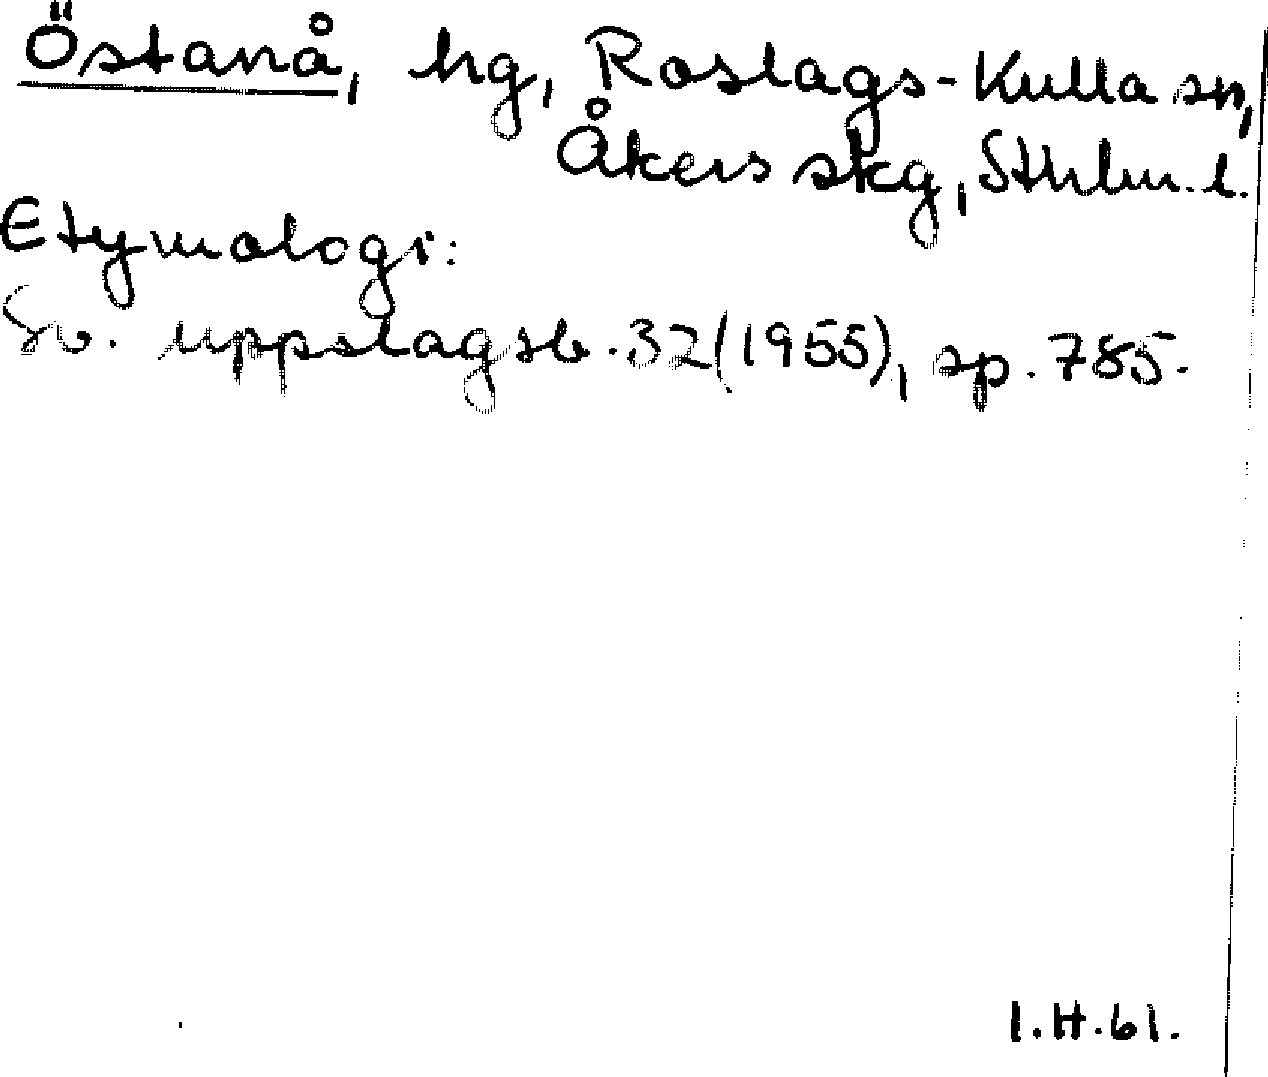 Östanå, hg, Roslags-Kulla sn,
Åkers skg, Sthlm. l.
Etymologi:
Sv. uppslagsb. 32 (1955), sp. 785.
I.H.61.